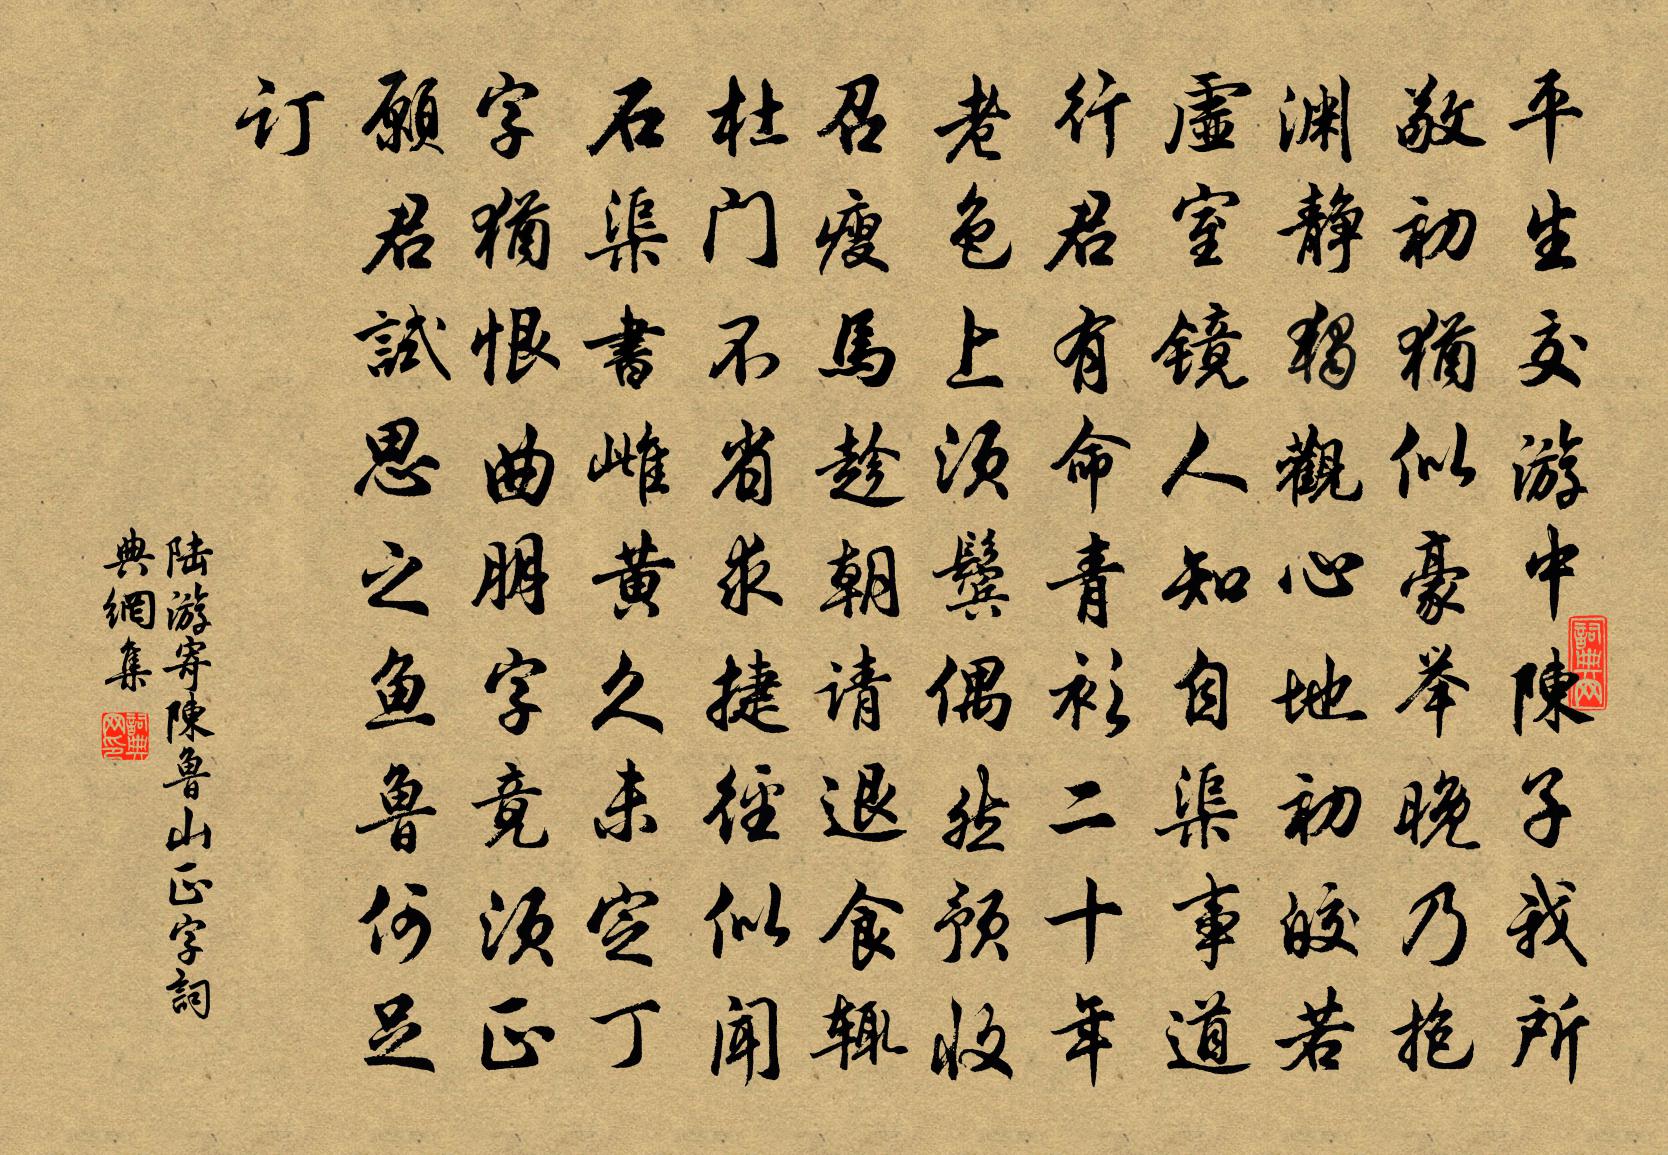 平生交游中陳子我所
敬初猶似豪举晚乃抱
渊静独觀心地初皎若
虚室镜人知自渠事道
行君有命青衫二十年
老色上须鬓偶然预收
召瘦馬趁朝请退食辄
杜门不省求捷径似闻
石渠書雌黄久未定丁
字猶恨曲朋字竟须正
願君試思之鱼魯何足
订
陆游寄陳魯山正字詞
典網集
詞典网
詞典网印